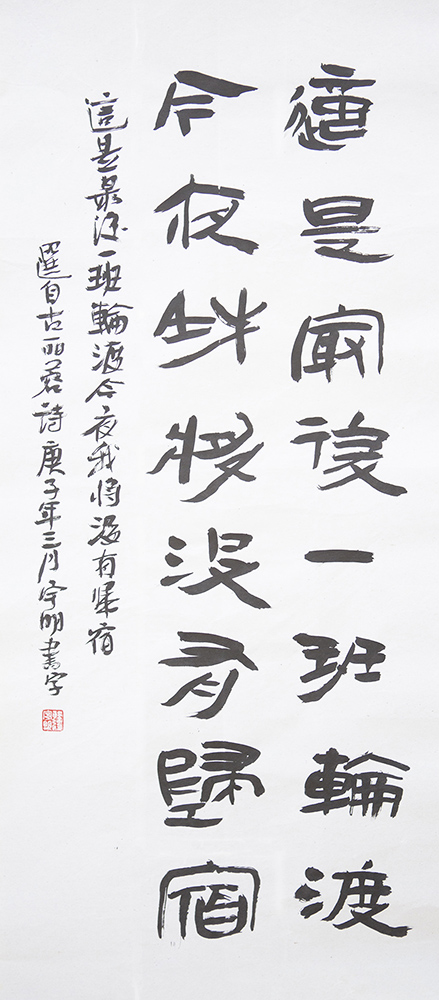 這是最後一班輪渡
今夜我將沒有歸宿
這是最後一班輪渡今夜我將沒有歸宿
選自古丽蓉詩庚子年三月守明書字